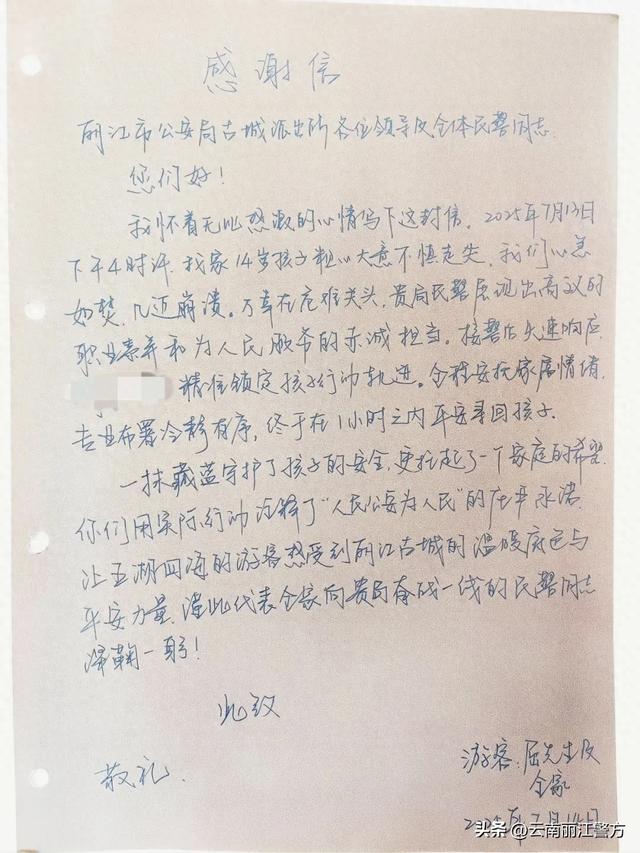 感谢信
丽江市公安局古城派出所各位领导及全体民警同志
您们好！
我怀着无比感激的心情写下这封信。2025年7月13日
下午4时许，我家14岁孩子粗心大意不慎走失，我们心急
如焚，几近崩溃。万幸在危难关头，贵局民警展现出高效的
职业素养和为人民服务的赤诚担当。接警后火速响应
精准锁定孩子行动轨迹。全程安抚家属情绪，
专业布署冷静有序，终于在1小时之内平安寻回孩子。
一抹藏蓝守护了孩子的安全，更托起了一个家庭的希望
你们用实际行动诠释了“人民公安为人民”的庄严承诺
让五湖四海的游客感受到丽江古城的温暖底色与
平安力量，谨此代表全家向贵局奋战一线的民警同志
深鞠一躬！
此致
敬礼。
游客：屈先生及
全家
2025年7月14日
头条@云南丽江警方